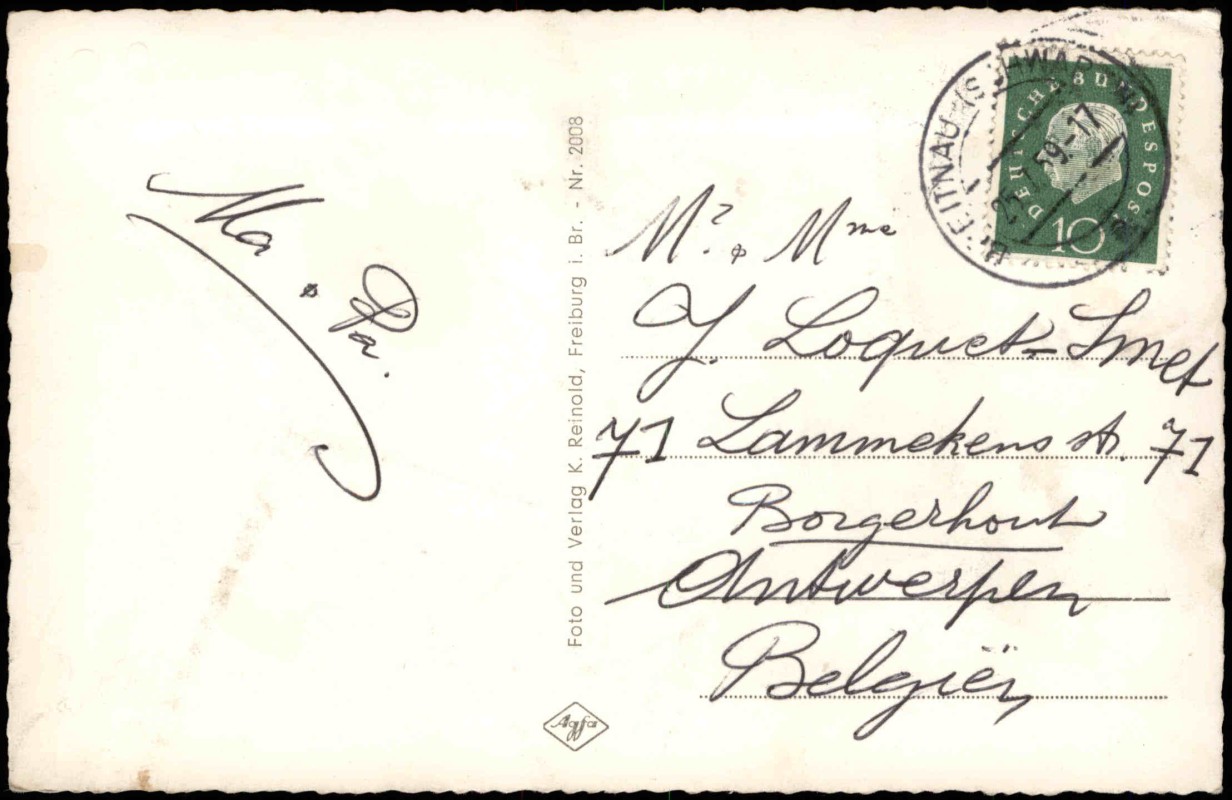 Ma & Pa.
Foto und Verlag K. Reinold, Freiburg i. Br. - Nr. 2008
Agfa
BREITNAU (SCHWARZW)
59-17
DEUTSCHE BUNDESPOST
10
Mr. & Mme
J. Loquet-Smet
71 Lammekens st. 71
Borgerhout
Antwerpen
Belgiën